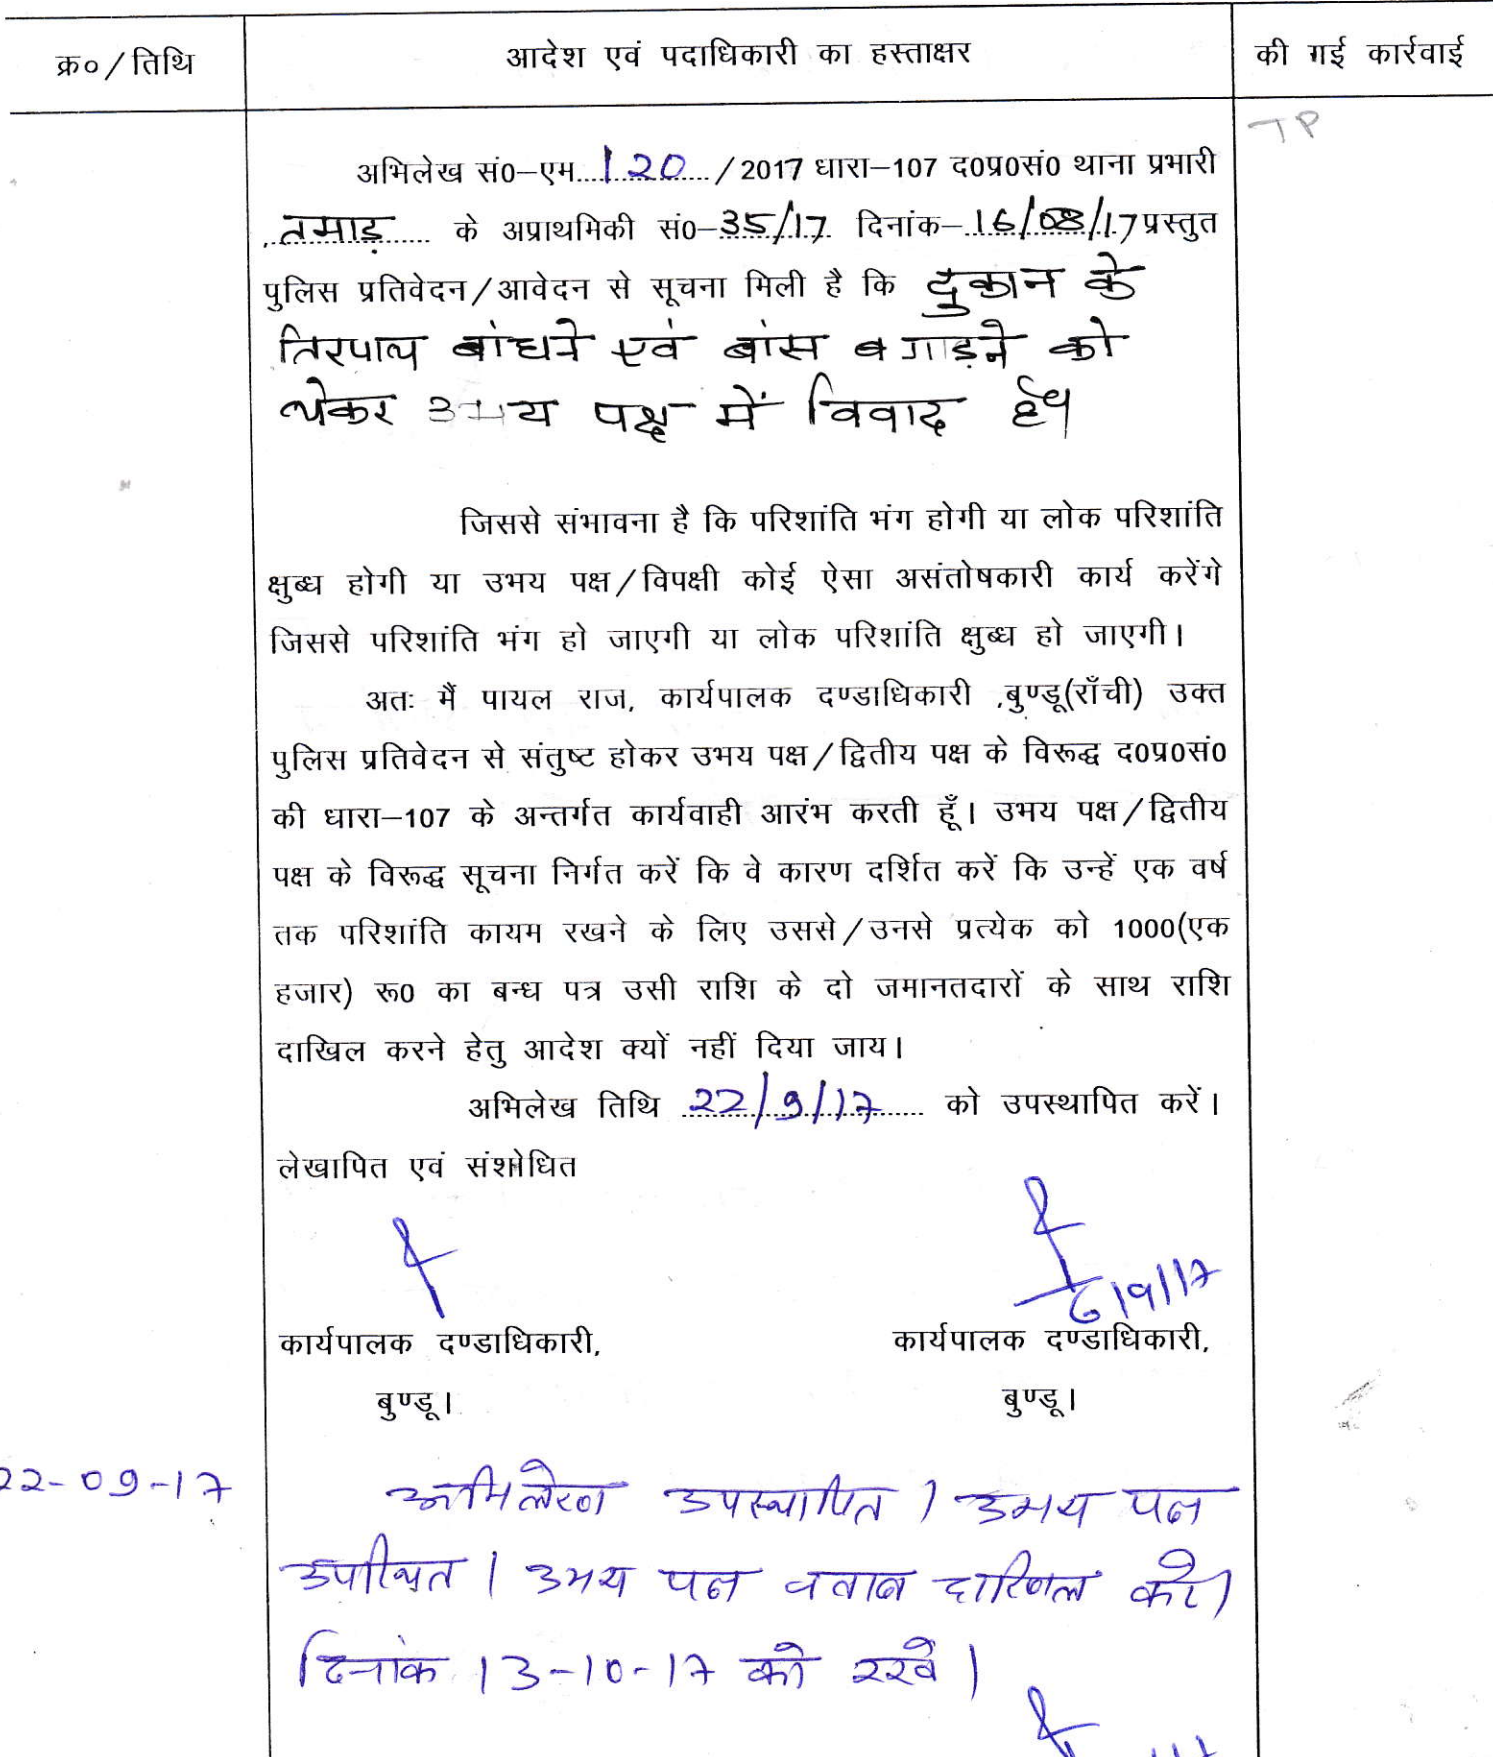 क्र०/तिथि
आदेश एवं पदाधिकारी का हस्ताक्षर
की गई कार्रवाई
TP
अभिलेख सं0–एम...120.../2017 धारा–107 द0प्र0सं0 थाना प्रभारी
तमाड़ के अप्राथमिकी सं0–35/17 दिनांक–16/08/17 प्रस्तुत
पुलिस प्रतिवेदन/आवेदन से सूचना मिली है कि दुकान के
तिरपाल बांधने एवं बांस व गाड़ने को
लेकर उभय पक्ष में विवाद है।
जिससे संभावना है कि परिशांति भंग होगी या लोक परिशांति
क्षुब्ध होगी या उभय पक्ष/विपक्षी कोई ऐसा असंतोषकारी कार्य करेंगे
जिससे परिशांति भंग हो जाएगी या लोक परिशांति क्षुब्ध हो जाएगी।
अतः मैं पायल राज, कार्यपालक दण्डाधिकारी ,बुण्डू(राँची) उक्त
पुलिस प्रतिवेदन से संतुष्ट होकर उभय पक्ष/द्वितीय पक्ष के विरूद्ध द0प्र0सं0
की धारा–107 के अन्तर्गत कार्यवाही आरंभ करती हूँ। उभय पक्ष/द्वितीय
पक्ष के विरूद्ध सूचना निर्गत करें कि वे कारण दर्शित करें कि उन्हें एक वर्ष
तक परिशांति कायम रखने के लिए उससे/उनसे प्रत्येक को 1000(एक
हजार) रू0 का बन्ध पत्र उसी राशि के दो जमानतदारों के साथ राशि
दाखिल करने हेतु आदेश क्यों नहीं दिया जाय।
अभिलेख तिथि 22/9/17 को उपस्थापित करें।
लेखापित एवं संशोधित
6/9/17
कार्यपालक दण्डाधिकारी, कार्यपालक दण्डाधिकारी,
बुण्डू। बुण्डू।
22-09-17 अभिलेख उपस्थापित। उभय पक्ष
उपस्थित। उभय पक्ष जवाब दाखिल करें।
दिनांक 13-10-17 को रखें।